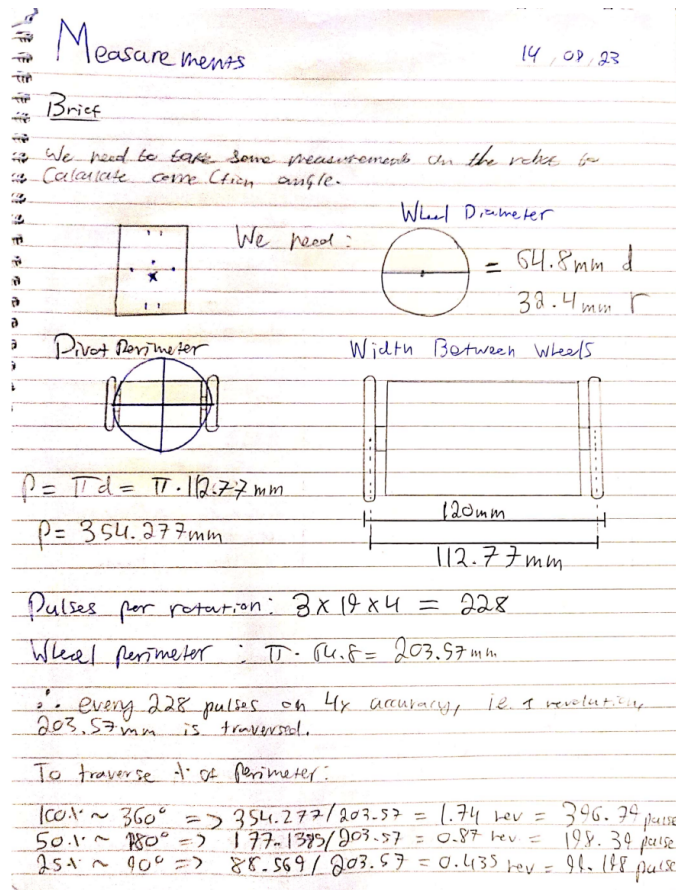 Measurements
14, 08, 23
Brief
We need to take some measurements on the robot to
Calculate correction angle.
We need:
Wheel Diameter
= 64.8mm d
32.4mm r
Pivot Perimeter
Width Between Wheels
P = πd = π·112.77mm
P = 354.277mm
120mm
112.77mm
Pulses per rotation: 3 x 19 x 4 = 228
Wheel perimeter : π· 64.8 = 203.57mm
∴ every 228 pulses on 4x accuracy, ie. 1 revolution,
203.57mm is traversed.
To traverse % of perimeter:
100% ~ 360° => 354.277/203.57 = 1.74 rev = 396.79 pulse
50% ~ 180° => 177.1385/203.57 = 0.87 rev = 198.39 pulse
25% ~ 90° => 88.569/203.57 = 0.435 rev = pulse